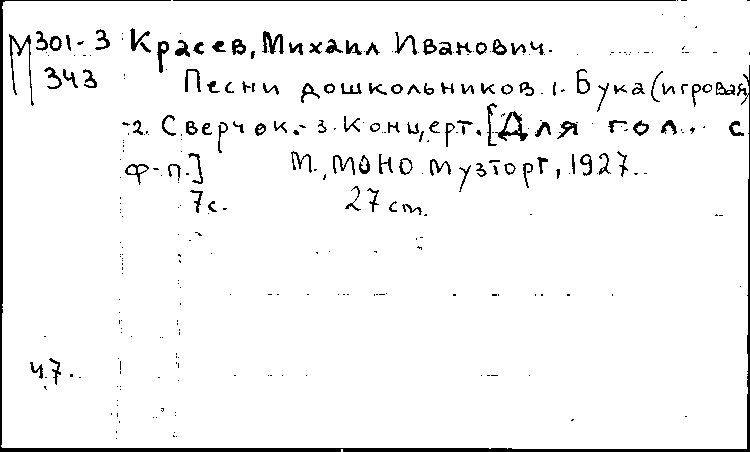 М301-3 Красев, Михаил Иванович.
343 Песни дошкольников. 1. Бука (игровая)
-2. Сверчок.- 3. Концерт. [Для гол. с
ф-п.] М., МОНО Музторг, 1927.
7с. 27 cm.
ч7.